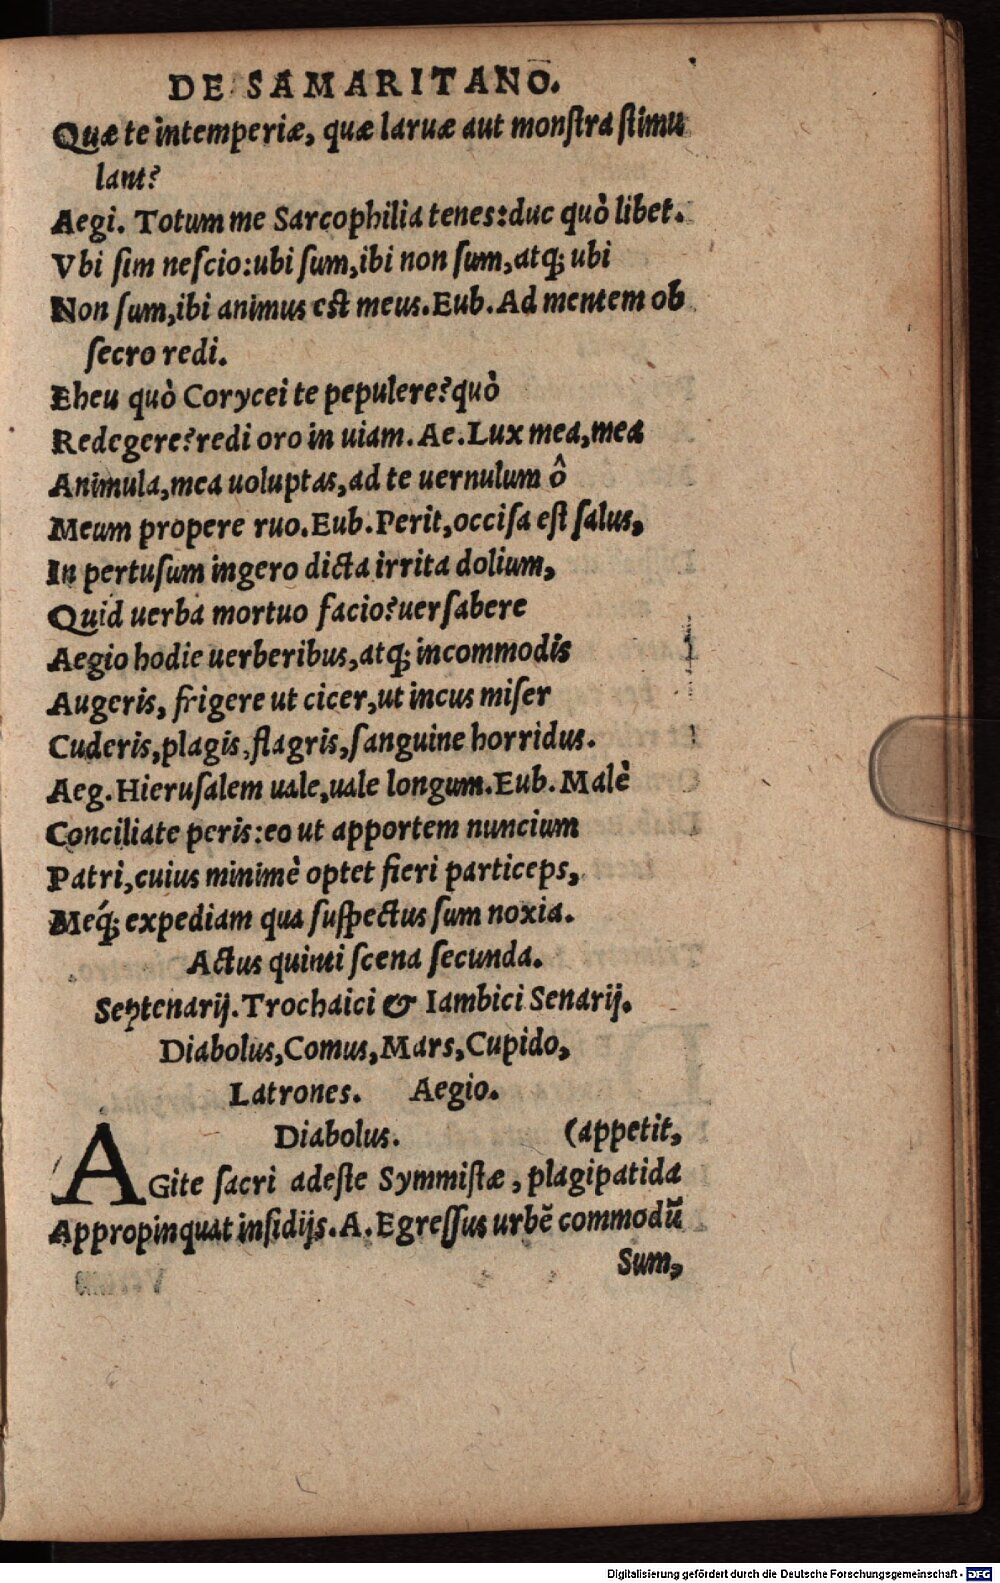 DE SAMARITANO.
Quæ te intemperiæ, quæ laruæ aut monſtra ſtimu
lant?
Aegi. Totum me Sarcophilia tenes: duc quò libet.
Vbi ſim neſcio: ubi ſum, ibi non ſum, atq; ubi
Non ſum, ibi animus eſt meus. Eub. Ad mentem ob
ſecro redi.
Eheu quò Corycei te pepulere? quò
Redegere? redi oro in uiam. Ae. Lux mea, mea
Animula, mea uoluptas, ad te uernulum ô
Meum propere ruo. Eub. Perit, occiſa eſt ſalus,
In pertuſum ingero dicta irrita dolium,
Quid uerba mortuo facio? uerſabere
Aegio hodie uerberibus, atq; incommodis
Augeris, frigere ut cicer, ut incus miſer
Cuderis, plagis, flagris, ſanguine horridus.
Aeg. Hieruſalem uale, uale longum. Eub. Malè
Conciliate peris: eo ut apportem nuncium
Patri, cuius minimè optet fieri particeps,
Meq́; expediam qua ſuſpectus ſum noxia.
Actus quinti ſcena ſecunda.
Septenarij. Trochaici & Iambici Senarij.
Diabolus, Comus, Mars, Cupido,
Latrones. Aegio.
Diabolus. (appetit,
AGite ſacri adeſte Symmiſtæ, plagipatida
Appropinquat inſidijs. A. Egreſſus urbẽ commodũ
Sum,
Digitalisierung gefördert durch die Deutsche Forschungsgemeinschaft - DFG